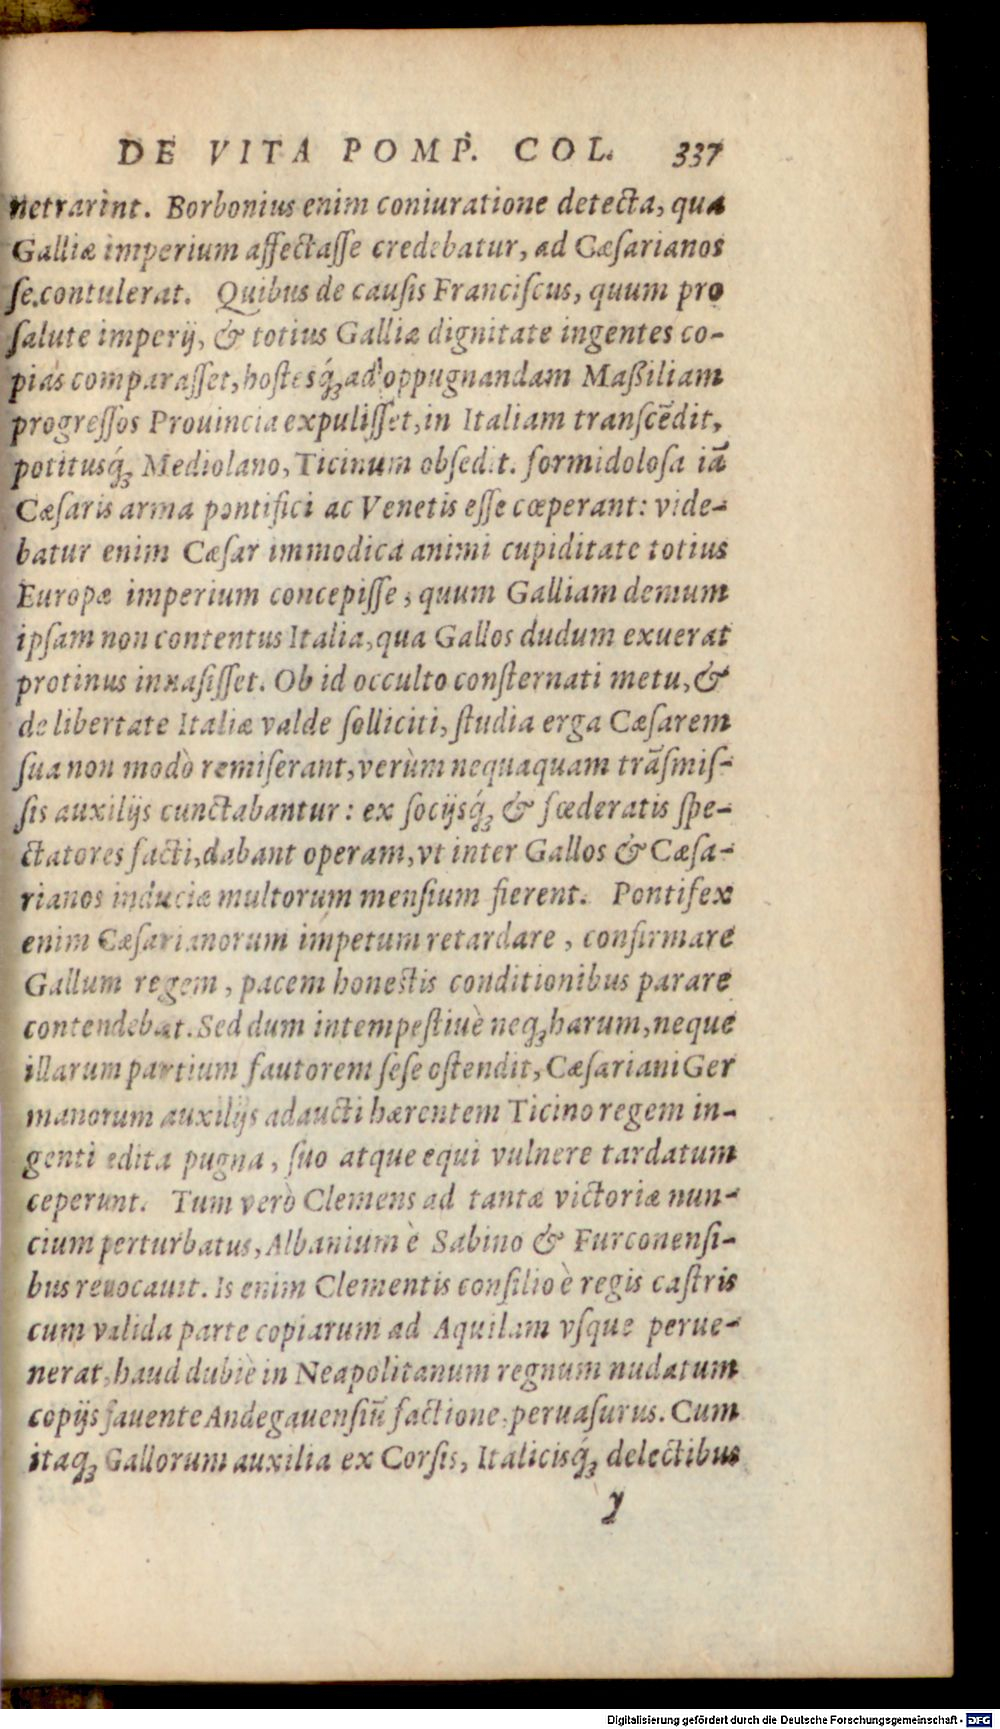 DE VITA POMP. COL. 337
netrarint. Borbonius enim coniuratione detecta, qua
Galliæ imperium affectaſſe credebatur, ad Cæſarianos
ſe contulerat. Quibus de cauſis Franciſcus, quum pro
ſalute imperij, & totius Galliæ dignitate ingentes co-
pias comparaſſet, hoſtesq́ꝫ ad oppugnandam Maßiliam
progreſſos Prouincia expuliſſet, in Italiam tranſcẽdit,
potitusq́ꝫ Mediolano, Ticinum obſedit. formidoloſa iã
Cæſaris arma pontifici ac Venetis eſſe cœperant: vide-
batur enim Cæſar immodica animi cupiditate totius
Europæ imperium concepiſſe, quum Galliam demum
ipſam non contentus Italia, qua Gallos dudum exuerat
protinus inuaſiſſet. Ob id occulto conſternati metu, &
de libertate Italiæ valde ſolliciti, ſtudia erga Cæſarem
ſua non modò remiſerant, verùm nequaquam trãſmiſ-
ſis auxilijs cunctabantur: ex ſocijsq́ꝫ & fœderatis ſpe-
ctatores facti, dabant operam, vt inter Gallos & Cæſa-
rianos induciæ multorum menſium fierent. Pontifex
enim Cæſarianorum impetum retardare, confirmare
Gallum regem, pacem honeſtis conditionibus parare
contendebat. Sed dum intempeſtiuè neqꝫ harum, neque
illarum partium fautorem ſeſe oſtendit, Cæſariani Ger
manorum auxilijs adaucti hærentem Ticino regem in-
genti edita pugna, ſuo atque equi vulnere tardatum
ceperunt. Tum verò Clemens ad tantæ victoriæ nun-
cium perturbatus, Albanium è Sabino & Furconenſi-
bus reuocauit. Is enim Clementis conſilio è regis caſtris
cum valida parte copiarum ad Aquilam vſque perue-
nerat, haud dubiè in Neapolitanum regnum nudatum
copijs fauente Andegauenſiũ factione, peruaſurus. Cum
itaqꝫ Gallorum auxilia ex Corſis, Italicisq́ꝫ delectibus
y
Digitalisierung gefördert durch die Deutsche Forschungsgemeinschaft - DFG